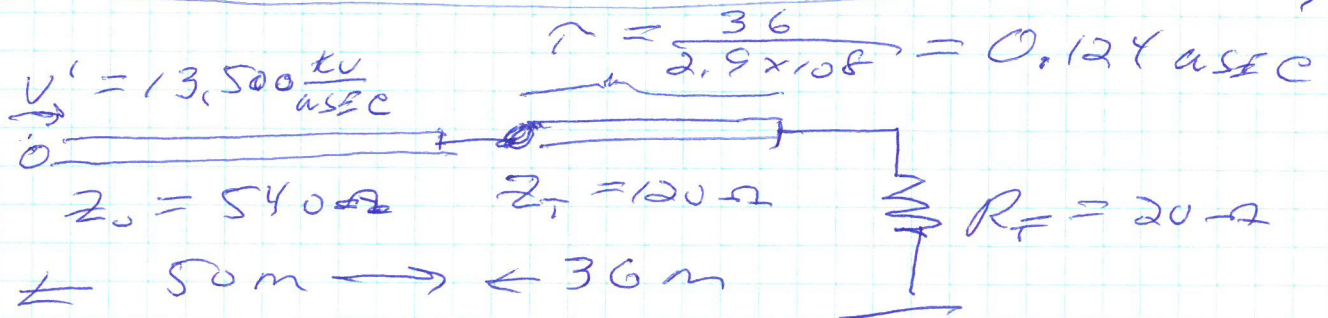 τ = 36 / 2.9×10⁸ = 0.124 usec
v' = 13,500 kv/usec
0
Z₀ = 540Ω Z_T = 120Ω R_F = 20Ω
← 50m → ← 36m